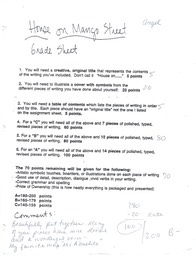 Angel
House on Mango Street
Grade Sheet
1. You will need a creative, original title that represents the contents
of the writing you've included. Don't call it "House on....." 5 points
2. You will need to illustrate a cover with symbols from the
different pieces of writing you have done about yourself. 20 points
3. You will need a table of contents which lists the pieces of writing in order
and by title. Each piece should have an "original title" not the one I listed
on the assignment sheet. 5 points
4. For a "C" you will need all of the above and 7 pieces of polished, typed,
revised pieces of writing. 60 points
5. For a "B" you will need all of the above and 10 pieces of polished, typed,
revised pieces of writing. 80 points
6. For an "A" you will need all of the above and 14 pieces of polished, typed,
revised pieces of writing. 100 points
The 70 points remaining will be given for the following:
-Artistic symbolic touches, boarders, or illustrations done on each piece of writing
-Good use of detail, description, dialogue, vivid verbs in your writing.
-Correct grammar and spelling
-Pride of Ownership (this is how neatly everything is packaged and presented)
A=180-200 points
B=160-179 points
C=140-159 points
Comments:
Beautifully put together. Many
of your pieces have nice details
and a wonderful voice.
200 B-